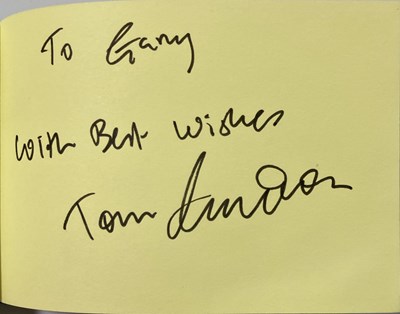 To Gary
With Best Wishes
Tom